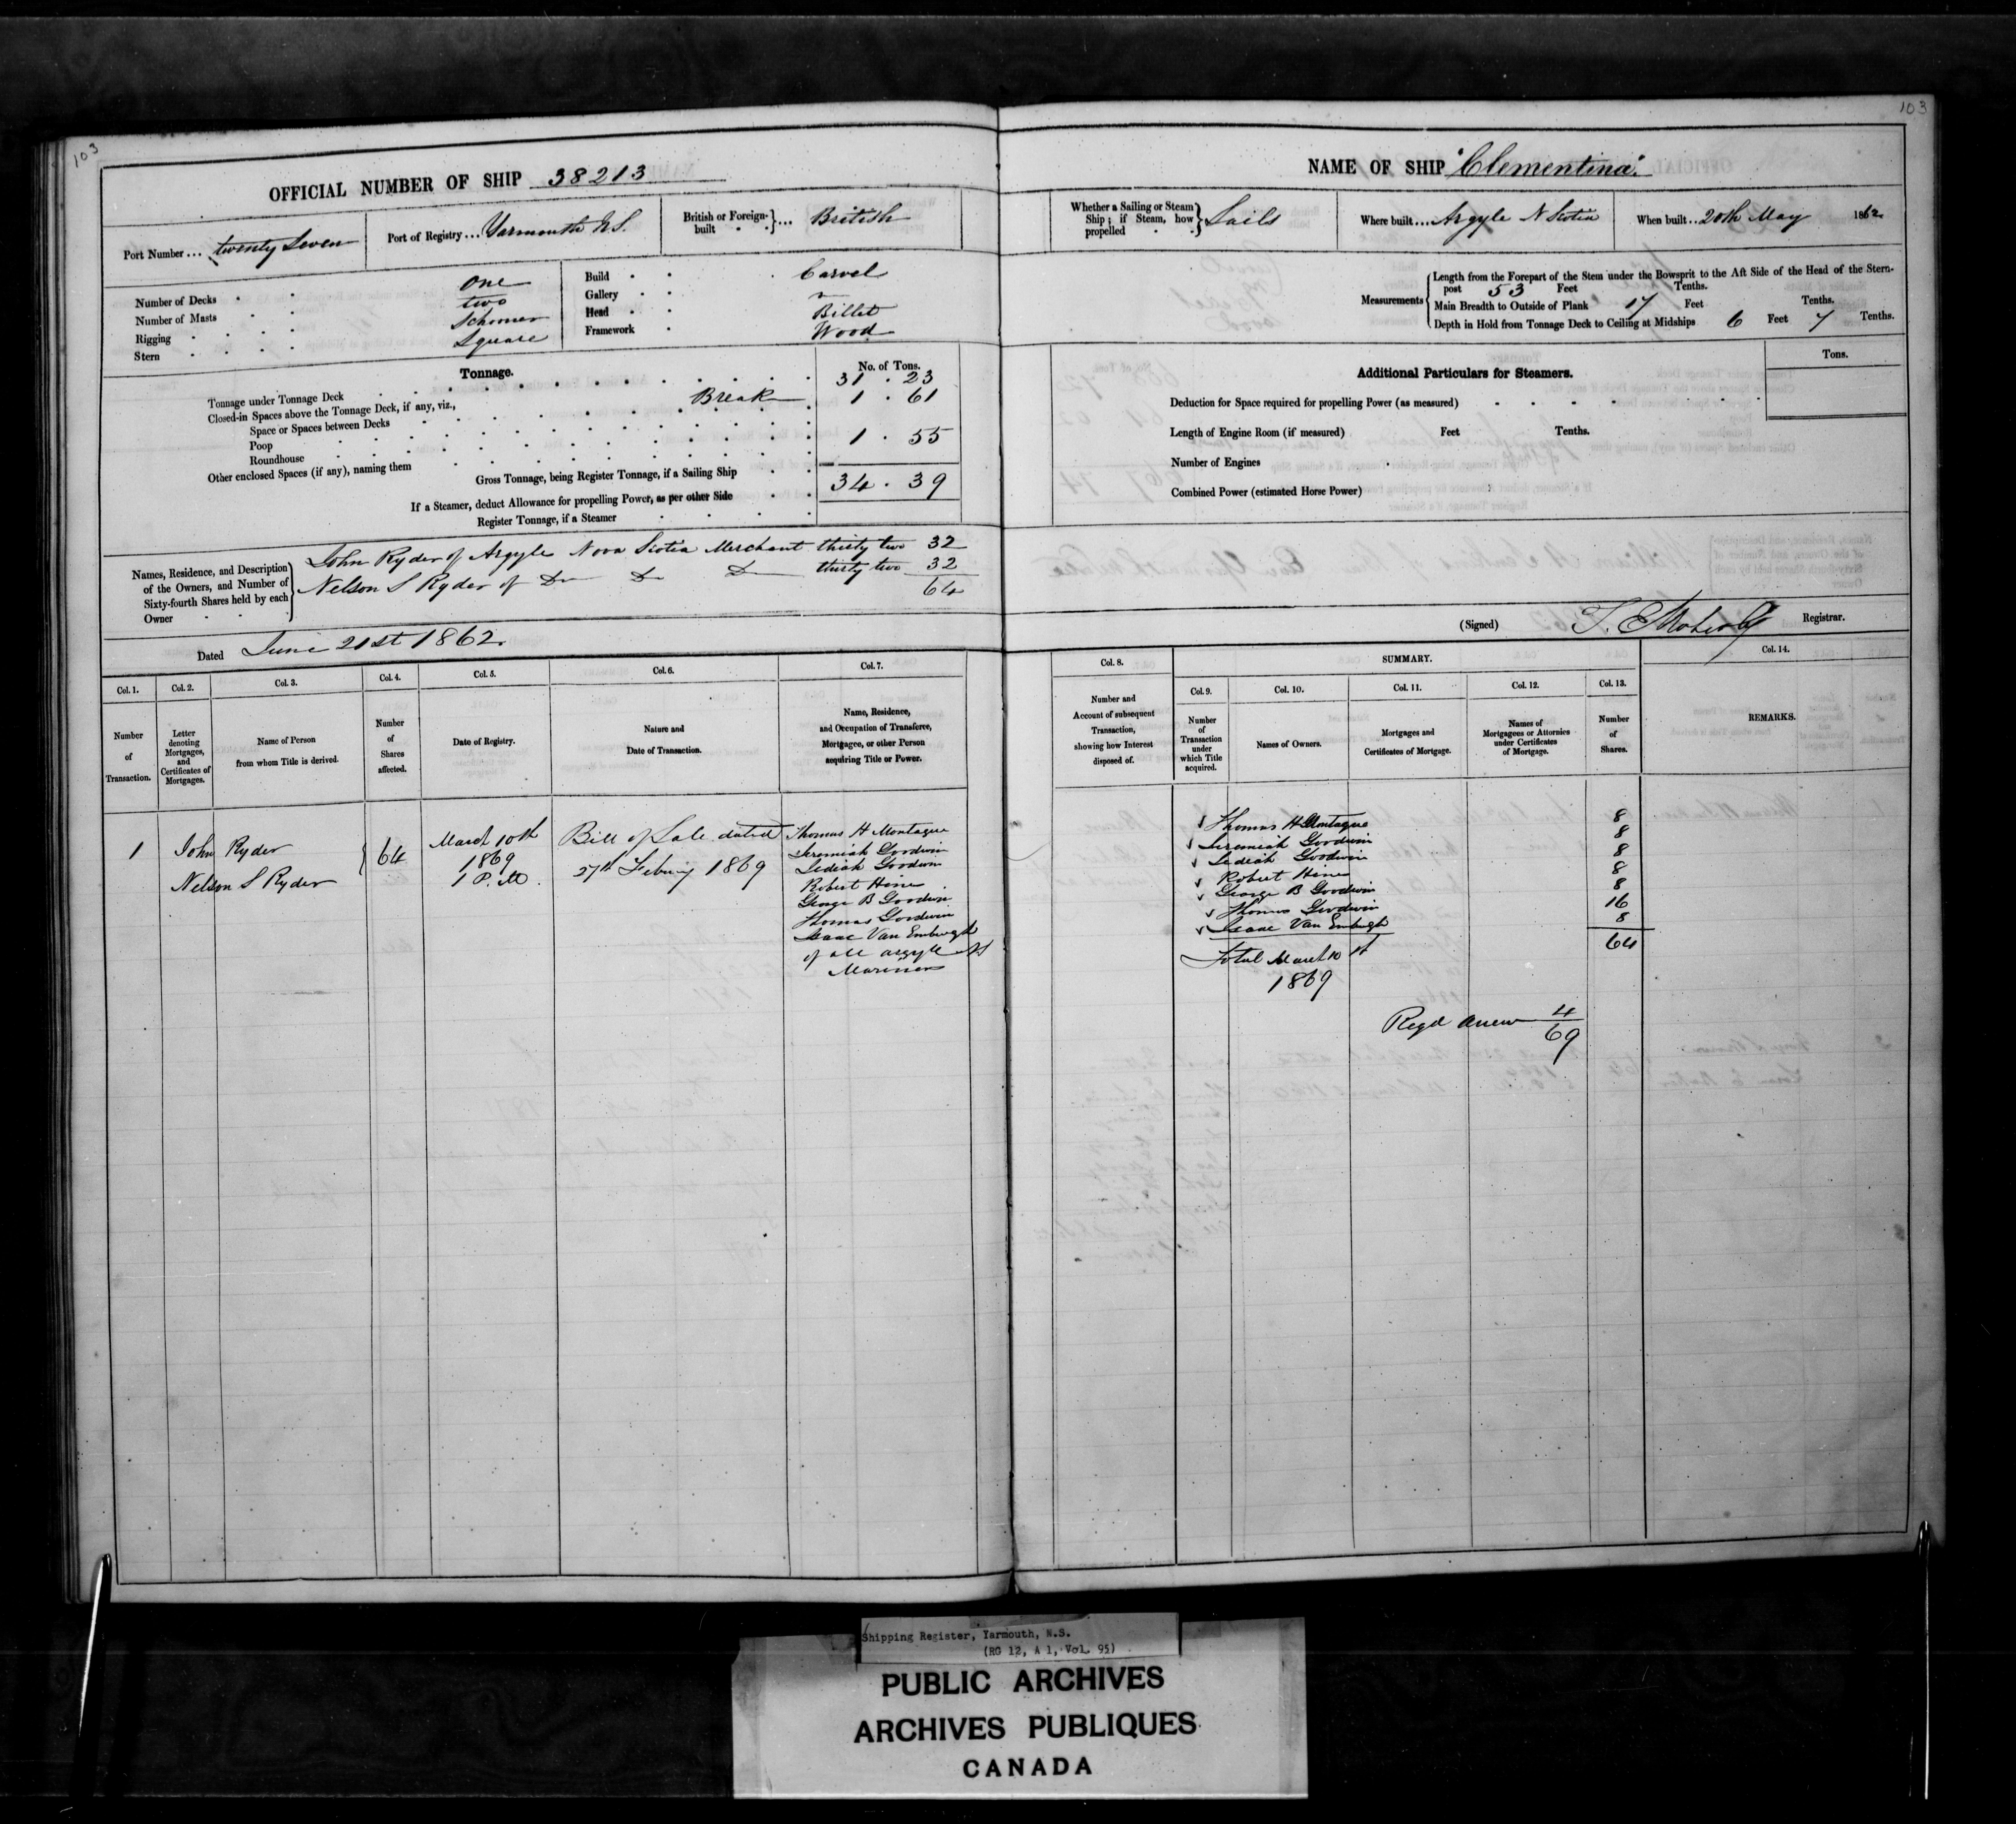 103
103
OFFICIAL NUMBER OF SHIP 38213
Port Number ... twenty Seven
Port of Registry ... Yarmouth N.S.
British or Foreign-built ... British
Number of Decks One
Number of Masts two
Rigging Schooner
Stern Square
Build Carvel
Gallery
Head Billet
Framework Wood
Tonnage.
No. of Tons.
Tonnage under Tonnage Deck 31 . 23
Closed-in Spaces above the Tonnage Deck, if any, viz., Break 1 . 61
Space or Spaces between Decks
Poop 1 . 55
Roundhouse
Other enclosed Spaces (if any), naming them
Gross Tonnage, being Register Tonnage, if a Sailing Ship 34 . 39
If a Steamer, deduct Allowance for propelling Power, as per other Side
Register Tonnage, if a Steamer
Names, Residence, and Description of the Owners, and Number of Sixty-fourth Shares held by each Owner
John Ryder of Argyle Nova Scotia Merchant thirty two 32
Nelson S Ryder of Do Do Do thirty two 32
64
Dated June 21st 1862
Col. 1.
Number of Transaction.
Col. 2.
Letter denoting Mortgages, and Certificates of Mortgages.
Col. 3.
Name of Person from whom Title is derived.
Col. 4.
Number of Shares affected.
Col. 5.
Date of Registry.
Col. 6.
Nature and Date of Transaction.
Col. 7.
Name, Residence, and Occupation of Transferee, Mortgagee, or other Person acquiring Title or Power.
1
John Ryder
Nelson S Ryder
64
March 10th
1869
1 P.M.
Bill of Sale dated
27th Februy 1869
Thomas H Montague
Jeremiah Goodwin
Jediah Goodwin
Robert Hines
George B Goodwin
Thomas Goodwin
Isaac Van Emburgh
of all argyle NS
Mariners
NAME OF SHIP "Clementina".
Whether a Sailing or Steam Ship; if Steam, how propelled Sails
Where built ... Argyle N Scotia
When built ... 20th May 1862
Measurements
Length from the Forepart of the Stem under the Bowsprit to the Aft Side of the Head of the Stern-
post 53 Feet Tenths.
Main Breadth to Outside of Plank 17 Feet Tenths.
Depth in Hold from Tonnage Deck to Ceiling at Midships 6 Feet 7 Tenths.
Additional Particulars for Steamers.
Tons.
Deduction for Space required for propelling Power (as measured)
Length of Engine Room (if measured) Feet Tenths.
Number of Engines
Combined Power (estimated Horse Power)
(Signed) Registrar.
Col. 8.
Number and Account of subsequent Transaction, showing how Interest disposed of.
SUMMARY.
Col. 9.
Number of Transaction under which Title acquired.
Col. 10.
Names of Owners.
Col. 11.
Mortgages and Certificates of Mortgage.
Col. 12.
Names of Mortgagees or Attornies under Certificates of Mortgage.
Col. 13.
Number of Shares.
Col. 14.
REMARKS.
Thomas H Montague 8
Jeremiah Goodwin 8
Jediah Goodwin 8
Robert Hines 8
George B Goodwin 8
Thomas Goodwin 16
Isaac Van Emburgh 8
Total March 10 64
1869
Regd anew 4/69
Shipping Register, Yarmouth, N.S.
(RG 12, A 1, Vol. 95)
PUBLIC ARCHIVES
ARCHIVES PUBLIQUES
CANADA